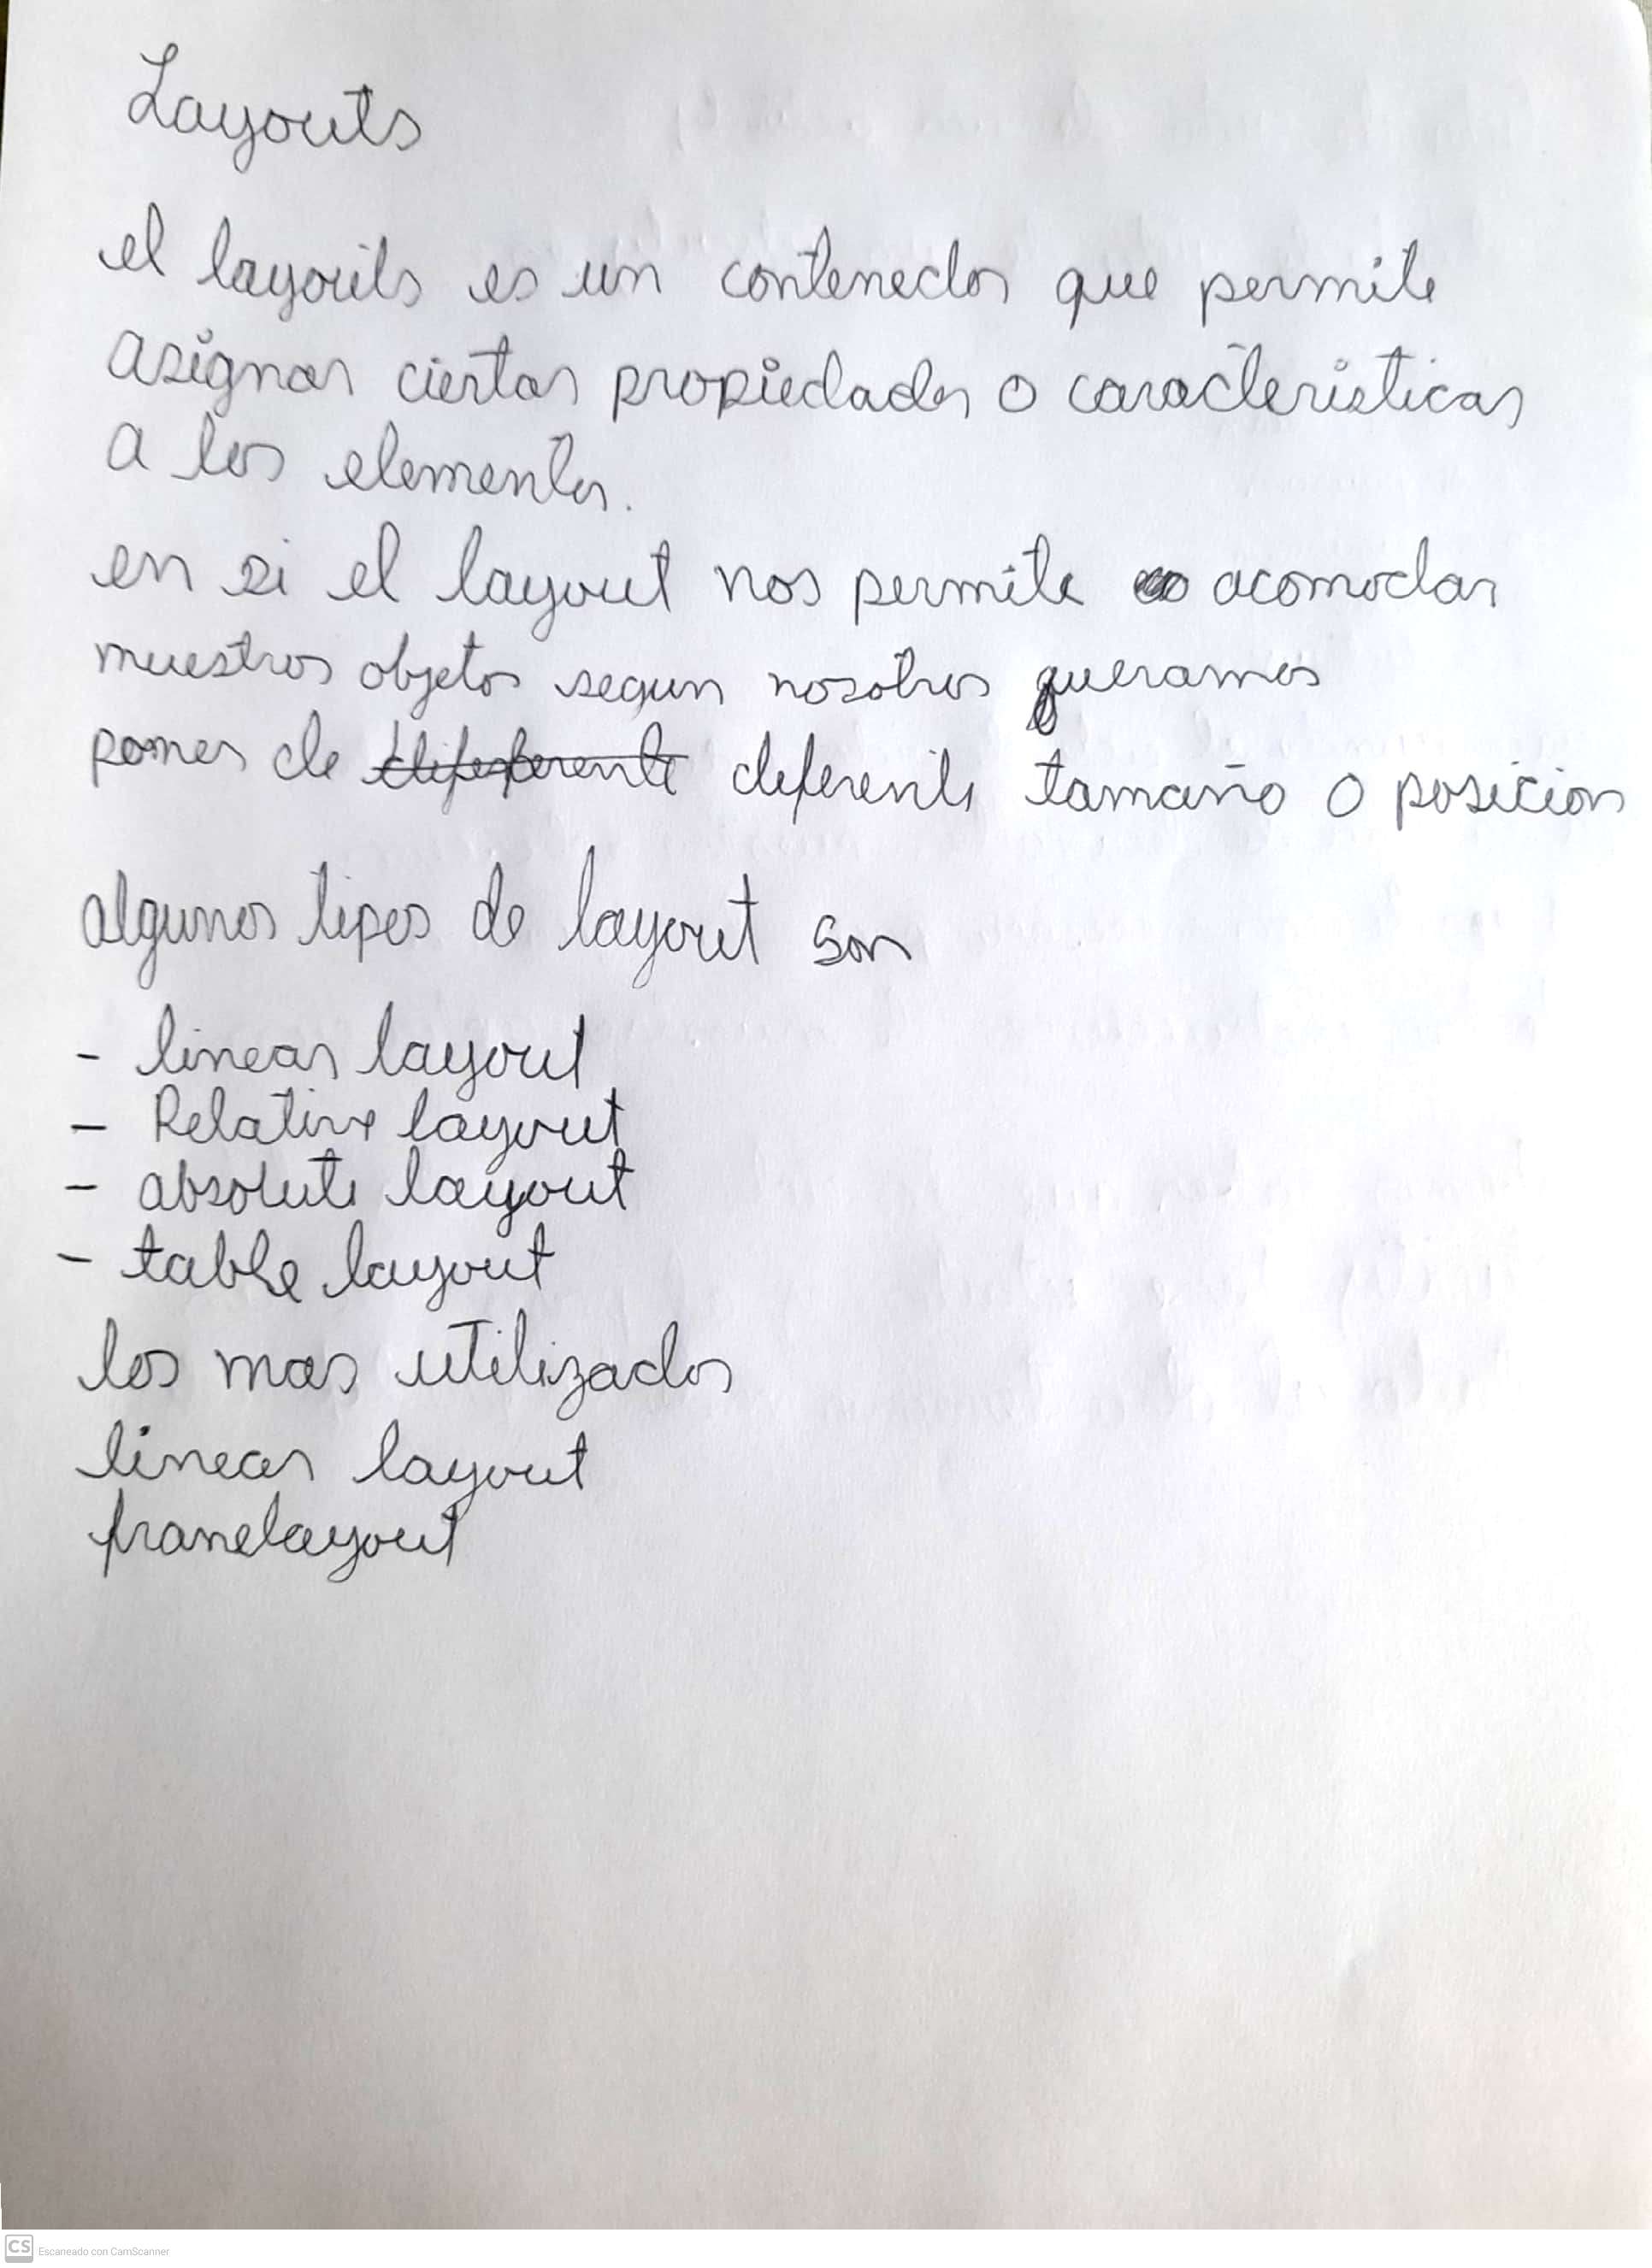 Layouts
el layouts es un contenedor que permite
asignar ciertas propiedades o características
a los elementos.
en si el layout nos permite acomodar
nuestros objetos segun nosotros queramos
poner de diferente diferente tamaño o posicion
algunos tipos de layout son
- linear layout
- Relative layout
- absolute layout
- table layout
los mas utilizados
linear layout
franelayout
CS Escaneado con CamScanner